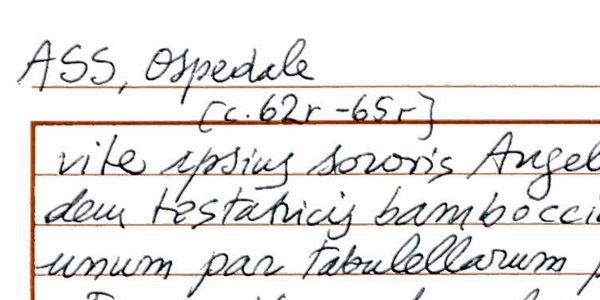 ASS, Ospedale
[c. 62r - 65r]
vite ipsius sororis Angel
dem testatricis bambocci
unum par tabulellarum